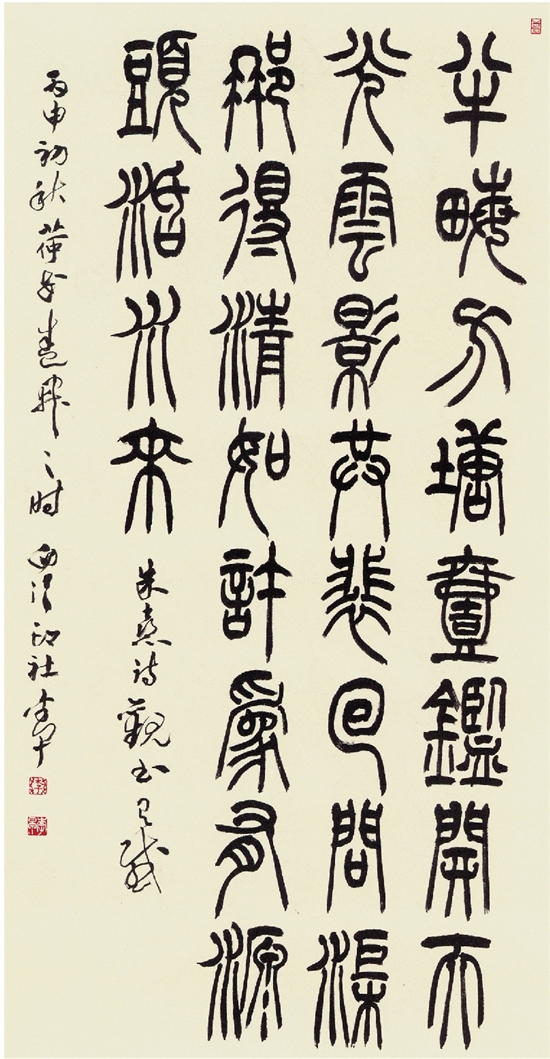 半畮方塘壹鑑開天
光雲影共裴回問渠
那得清如許為有源
頭活水來
朱熹诗觀书有感
丙申初秋荷花盛開之时西泠印社